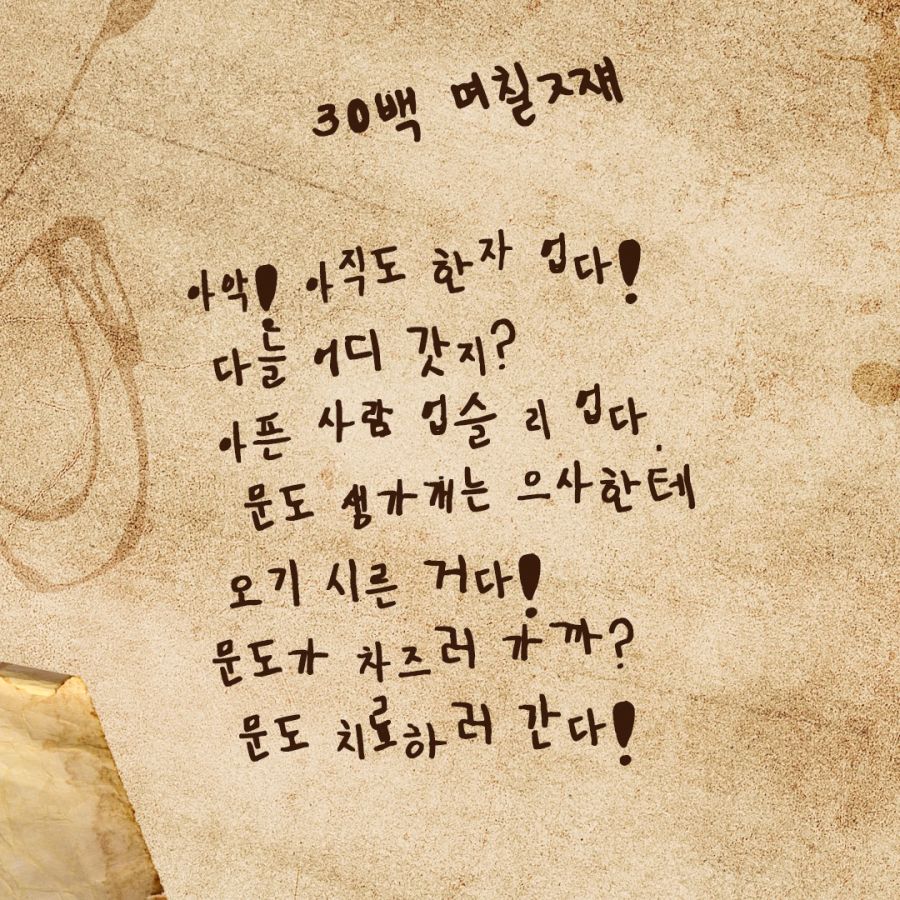 30백 며칠ㅈ재
아악! 아직도 한자 업다!
다늘 어디 갓지?
아픈 사람 업슬 리 업다.
문도 생가개는 으사한테
오기 시른 거다!
문도가 차즈러 가까?
문도 치료하러 간다!